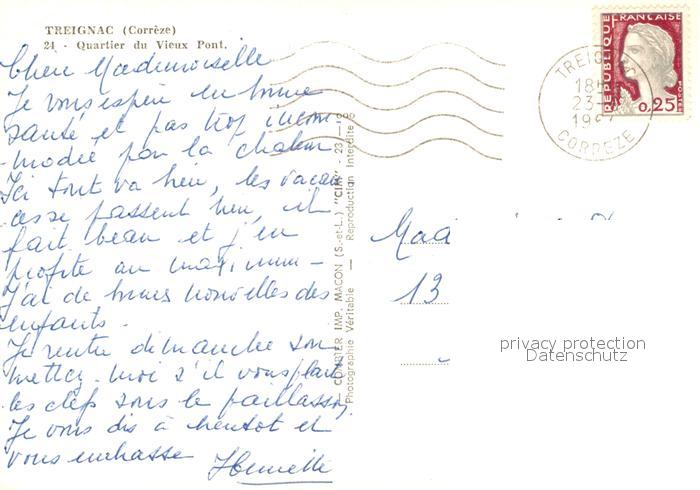 TREIGNAC (Corrèze)
24 - Quartier du Vieux Pont.
Chère Mademoiselle
Je vous espère en bonne
santé et pas trop incom-
modée par la chaleur
Ici tout va bien, les vacan
ces se passent bien, il
fait beau et j'en
profite au maximum -
J'ai de bonnes nouvelles des
enfants.
Je rentre dimanche
mettez-moi s'il vous plait
les clefs sous le paillasson,
Je vous dis à bientôt et
vous embrasse Henriette
COMBIER IMP. MACON (S.-et-L.) "CIM" - 23
Photographie Véritable — Reproduction Interdite
RÉPUBLIQUE FRANÇAISE
POSTES
0,25
TREIGNAC
18H
23-
19
CORREZE
13
privacy protection
Datenschutz